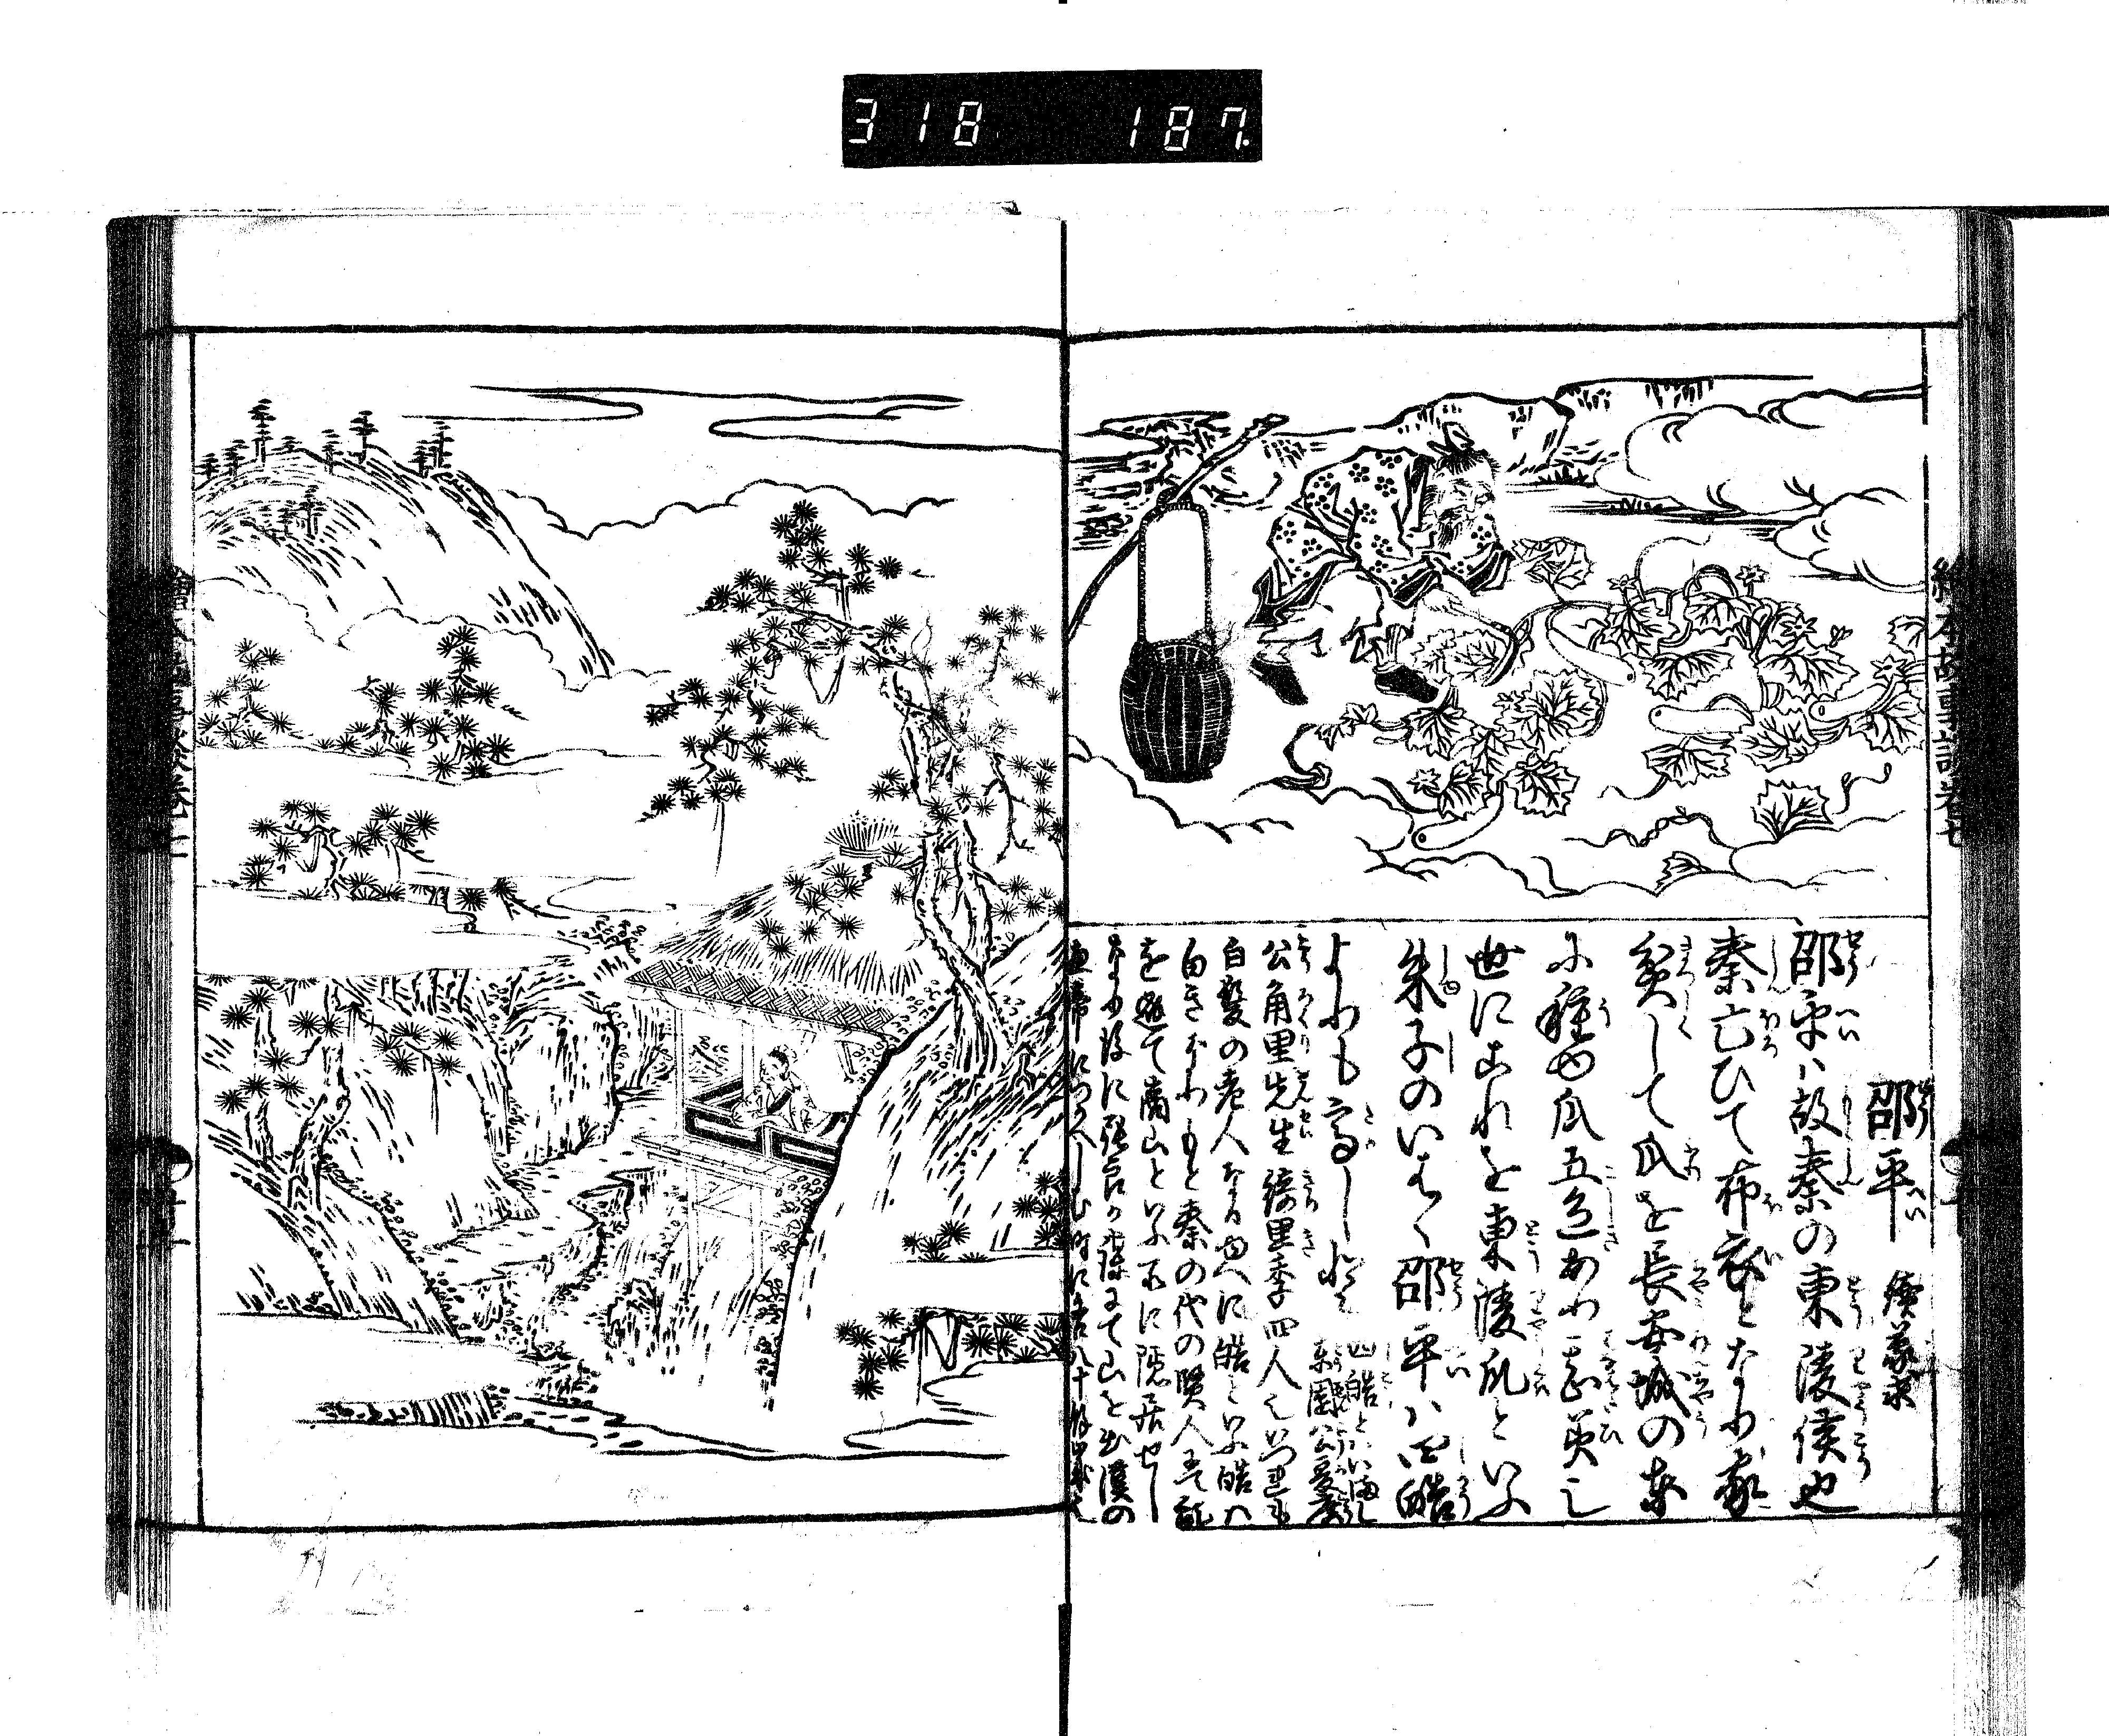 318 187
絵本故事談巻七
邵平 續蒙求
邵平ハ故秦の東陵侯也
秦亡ひて布衣となり家
貧して瓜を長安城の東
に種ゆ瓜五色あり甚美し
世にこれを東陵瓜といふ
朱子のいはく邵平ハ四皓
よりも高しと
四皓とハ
東園公夏黄
公角里先生綺里季四人をいつれも
白髪の老人なるゆへに皓といふ皓ハ
白きなりもと秦の代の賢人
を避て商山といふ所に隠居せし
に張良か謀にて山を出漢の
恵帝につかへし時に各八十